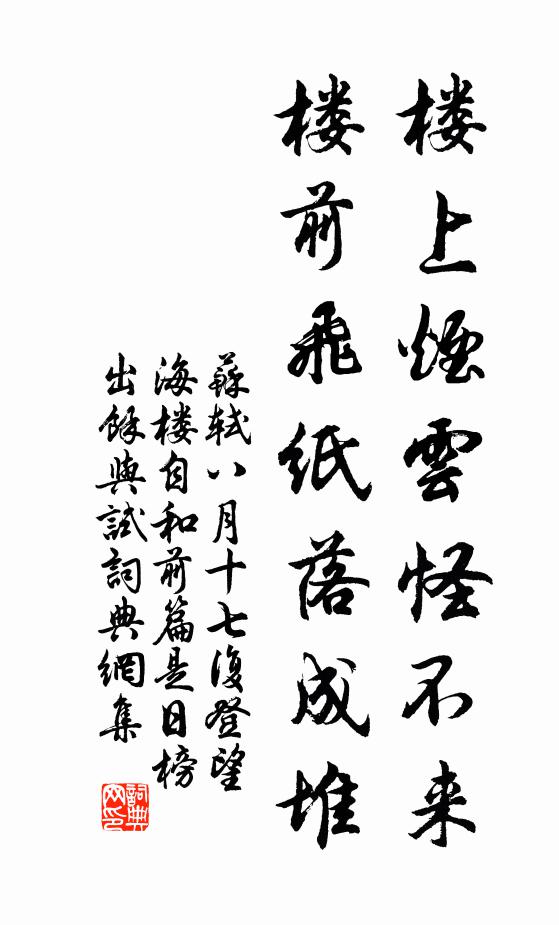 楼上煙雲怪不来
楼前飛紙落成堆
蘇軾八月十七復登望
海楼自和前篇是日榜
出餘與試詞典網集
詞典
网印